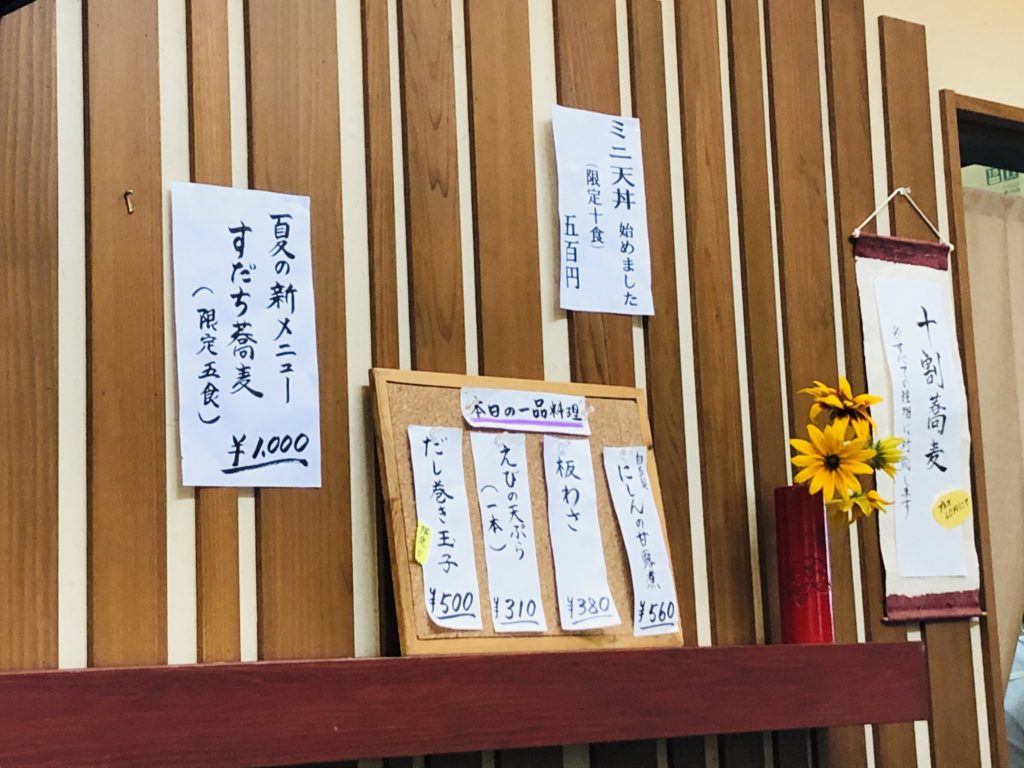 夏の新メニュー
すだち蕎麦
(限定五食)
¥1.000
ミニ天丼 始めました
(限定十食)
五百円
本日の一品料理
だし巻き玉子
¥500
えびの天ぷら
(一本)
¥310
板わさ
¥380
にしんの甘露煮
¥560
十割蕎麦